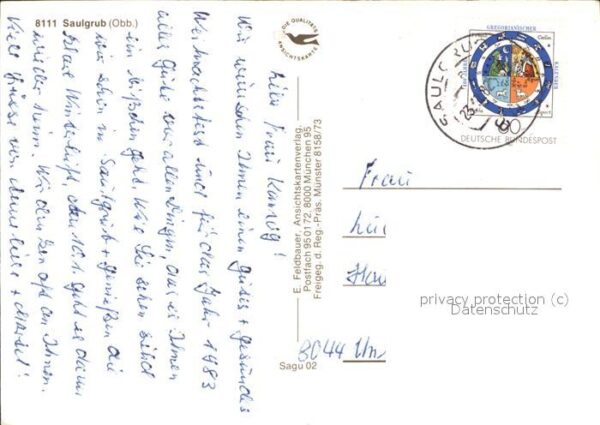 8111 Saulgrub (Obb.)
DIE QUALITÄTS
ANSICHTSKARTE
Liebe Frau
Wir wünschen Ihnen ein gutes + gesundes
Weihnachtsfest und für das Jahr 1983
alles Gute vor allen Dingen, daß es Ihnen
ein bißchen geht. Wie Sie sehen sind
wir schon in Saulgrub + genießen die
Winterluft, den 10.1. geht es dann
wieder heim. Wir denken oft an Ihnen.
Viele Grüsse von
E. Feldbauer, Ansichtskartenverlag,
Postfach 95 01 72, 8000 München 95
Freigeg. d. Reg.-Präs. Münster 8158/73
Sagu 02
GREGORIANISCHER
KALENDER
60
DEUTSCHE BUNDESPOST
SAULGRUB
Frau
8044 Un
privacy protection (c)
Datenschutz